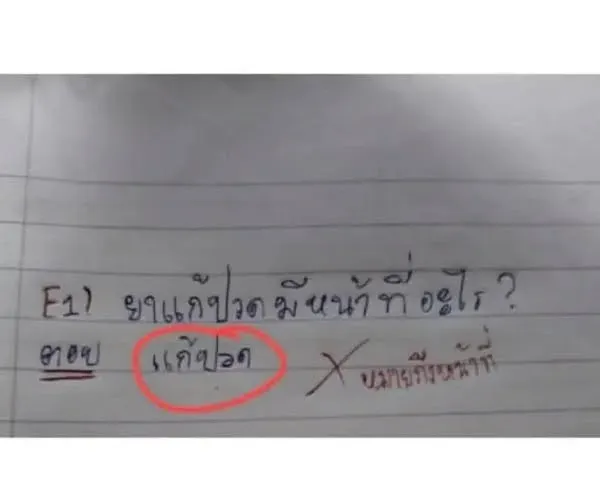 E1) ยาแก้ปวดมีหน้าที่อะไร?
ตอบ แก้ปวด X หมายถึงหน้าที่